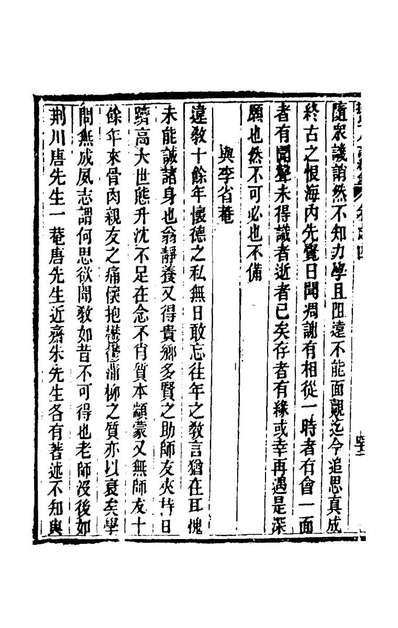 隨衆譏誚然不知力學且阻遠不能面覿迄今追思真成
終古之恨海内先覺日聞凋謝有相從一時者有會一面
者有聞聲未得識者逝者已矣存者有緣或幸再遇是深
願也然不可必也不備
與李省菴
違教十餘年懷德之私無日敢忘往年之教言猶在耳愧
未能誠諸身也翁靜養又得貴鄉多賢之助師友夾持日
躋高大世態升沈不足在念不肖質本顓蒙又無師友十
餘年來骨肉親友之痛俟抱懋懋蒲柳之質亦以衰矣學
問無成風志謂何思欲聞教如昔不可得也老師沒後如
荆川唐先生一菴唐先生近齋朱先生各有著述不知與